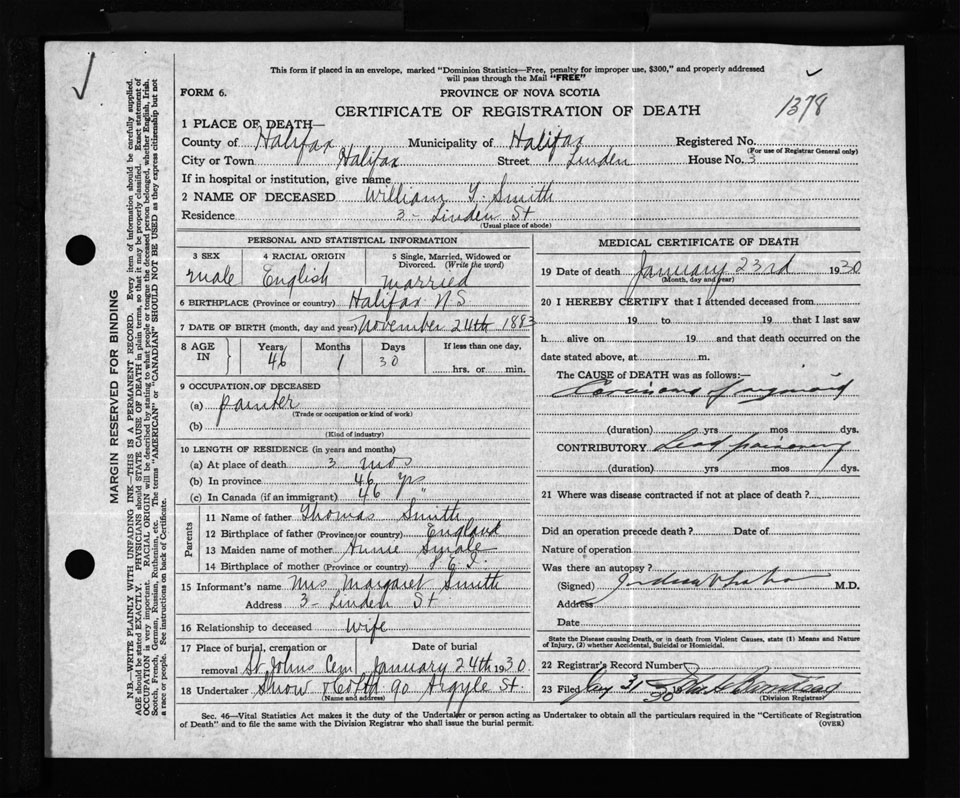 This form if placed in an envelope, marked "Dominion Statistics—Free, penalty for improper use, $300," and properly addressed
will pass through the Mail "FREE"
FORM 6.
PROVINCE OF NOVA SCOTIA
1378
CERTIFICATE OF REGISTRATION OF DEATH
1 PLACE OF DEATH—
County of Halifax Municipality of Halifax Registered No.
(For use of Registrar General only)
City or Town Halifax Street Linden House No. 3
If in hospital or institution, give name
2 NAME OF DECEASED William Y. Smith
Residence 3 - Linden St
(Usual place of abode)
PERSONAL AND STATISTICAL INFORMATION
3 SEX 4 RACIAL ORIGIN 5 Single, Married, Widowed or Divorced. (Write the word)
male English Married
6 BIRTHPLACE (Province or country) Halifax N S
7 DATE OF BIRTH (month, day and year) November 24th 1883
8 AGE IN Years Months Days If less than one day,
46 1 30 hrs. or min.
9 OCCUPATION OF DECEASED
(a) painter
(Trade or occupation or kind of work)
(b)
(Kind of industry)
10 LENGTH OF RESIDENCE (in years and months)
(a) At place of death 3 mos
(b) In province 46 yrs
(c) In Canada (if an immigrant) 46 "
Parents
11 Name of father Thomas Smith
12 Birthplace of father (Province or country) England
13 Maiden name of mother Annie Smale
14 Birthplace of mother (Province or country) P.E.I.
15 Informant's name Mrs Margaret Smith
Address 3 - Linden St
16 Relationship to deceased Wife
17 Place of burial, cremation or Date of burial
removal St Johns Cem January 24th 1930.
18 Undertaker Snow & Co Ltd 90 Argyle St.
(Name and address)
MEDICAL CERTIFICATE OF DEATH
19 Date of death January 23rd 1930
(Month, day and year)
20 I HEREBY CERTIFY that I attended deceased from
19 to 19 that I last saw
h alive on 19 and that death occurred on the
date stated above, at m.
The CAUSE of DEATH was as follows:—
Carcinoma of
(duration) yrs mos dys.
CONTRIBUTORY Lead poisoning
(duration) yrs mos dys.
21 Where was disease contracted if not at place of death?
Did an operation precede death? Date of
Nature of operation
Was there an autopsy?
(Signed) M.D.
Address
Date
State the Disease causing Death, or in death from Violent Causes, state (1) Means and Nature
of Injury, (2) whether Accidental, Suicidal or Homicidal.
22 Registrar's Record Number
23 Filed 31 30
(Division Registrar)
Sec. 46—Vital Statistics Act makes it the duty of the Undertaker or person acting as Undertaker to obtain all the particulars required in the "Certificate of Registration
of Death" and to file the same with the Division Registrar who shall issue the burial permit. (OVER)
MARGIN RESERVED FOR BINDING
N.B.—WRITE PLAINLY WITH UNFADING INK—THIS IS A PERMANENT RECORD. Every item of information should be carefully supplied.
AGE should be stated EXACTLY. PHYSICIANS should STATE CAUSE OF DEATH in plain terms, so that it may be properly classified. Exact statement of
OCCUPATION is very important. RACIAL ORIGIN will be described by stating to what people or tongue the deceased person belonged, whether English, Irish,
Scotch, French, German, Russian, Ruthenian, etc. The terms "AMERICAN" or "CANADIAN" SHOULD NOT BE USED as they express citizenship but not
a race or people. See instructions on back of Certificate.